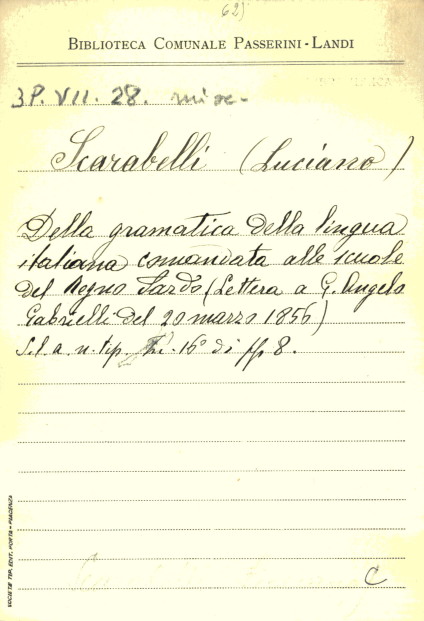 62)
BIBLIOTECA COMUNALE PASSERINI-LANDI
3P. VII. 28. misc.
Scarabelli (Luciano)
Della gramatica della lingua
italiana comandata alle scuole
del Regno Sardo (Lettera a G. Angelo
Gabrielli del 20 marzo 1856)
S. l. a. n. tip. 16° di pp. 8.
C
SOCIETÀ TIP. EDIT. PORTA - PIACENZA